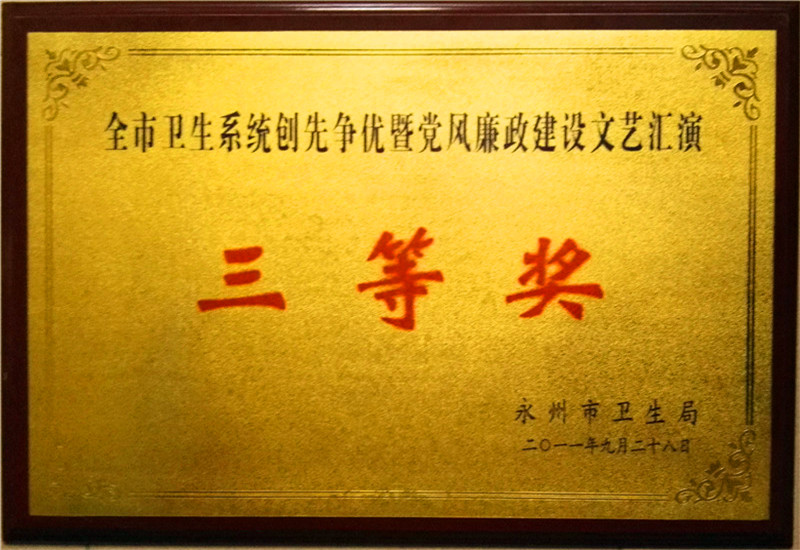 全市卫生系统创先争优暨党风廉政建设文艺汇演
三等奖
永州市卫生局
二〇一一年九月二十八日